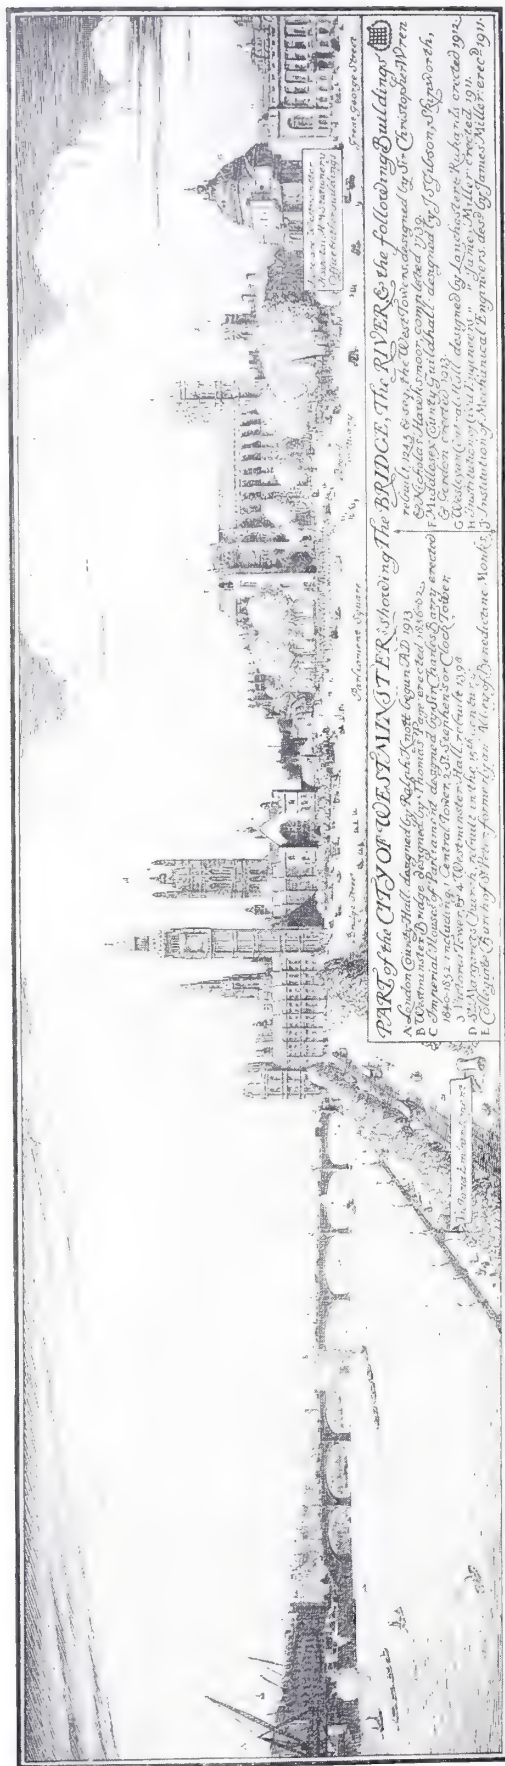 PART of the CITY OF WESTMINSTER: showing The BRIDGE, The RIVER, & the following Buildings
A London County Hall, designed by Ralph Knott begun AD 1913
B Westminster Bridge designed by Thomas Page erected 1856-62
C Imperial Houses of Parliament designed by Sir Charles Barry erected
1840-1852 including 1 Central Tower, 2 St. Stephen's or Clock Tower,
3 Victoria Tower, & 4 Westminster Hall, rebuilt 1398
D St. Margaret's Church, rebuilt in the 15th century
E Collegiate Church of St. Peter formerly an Abbey of Benedictine Monks,
rebuilt 1245 & seq. the West Towers, designed by Sir Christopher Wren
& Nicholas Hawksmoor, completed 1739.
F Middlesex County Guildhall: designed by J S Gibson, Skipworth,
& Gordon erected 1913
G Wesleyan Central Hall designed by Lanchester & Rickards erected 1912
H Institution of Civil Engineers " " James Miller erected 1911.
J Institution of Mechanical Engineers. desd by James Miller: erecd 1911.
Bridge Street
Parliament Square
Broad Sanctuary
Great George Street
Stationery
Office & other Buildings
Victoria Embankment